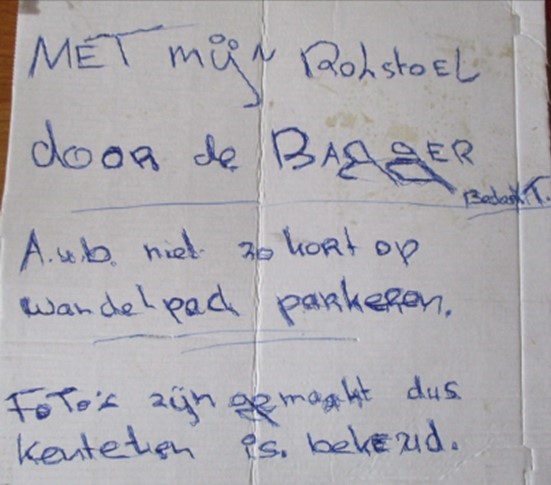 MET mijn Rolstoel
door de BAGGER
Bedankt.
A.u.b. niet zo kort op
wandelpad parkeren.
FOTO's zijn gemaakt dus
kenteken is. bekend.